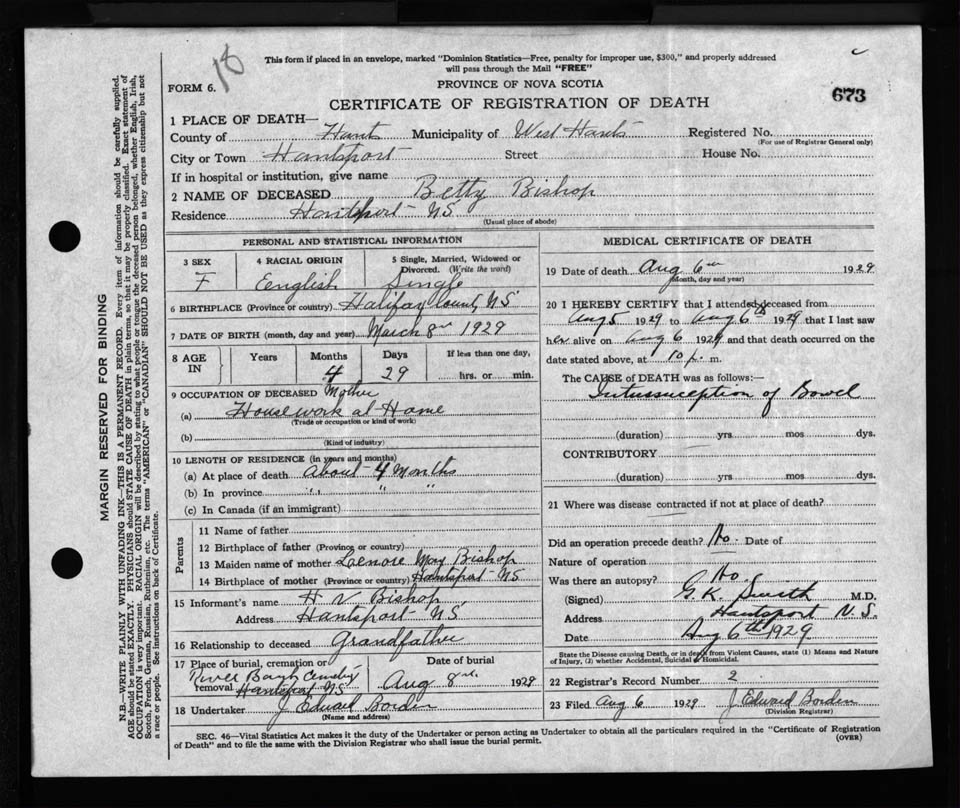 18
This form if placed in an envelope, marked "Dominion Statistics—Free, penalty for improper use, $300," and properly addressed
will pass through the Mail "FREE"
FORM 6.
PROVINCE OF NOVA SCOTIA
CERTIFICATE OF REGISTRATION OF DEATH
673
1 PLACE OF DEATH—
County of Hants Municipality of West Hants Registered No.
(For use of Registrar General only)
City or Town Hantsport Street House No.
If in hospital or institution, give name
2 NAME OF DECEASED Betty Bishop
Residence Hantsport NS
(Usual place of abode)
MARGIN RESERVED FOR BINDING
N.B.—WRITE PLAINLY WITH UNFADING INK—THIS IS A PERMANENT RECORD. Every item of information should be carefully supplied.
AGE should be stated EXACTLY. PHYSICIANS should STATE CAUSE OF DEATH in plain terms, so that it may be properly classified. Exact statement of
OCCUPATION is very important. RACIAL ORIGIN will be described by stating to what people or tongue the deceased person belonged, whether English, Irish,
Scotch, French, German, Russian, Ruthenian, etc. The terms "AMERICAN" or "CANADIAN" SHOULD NOT BE USED as they express citizenship but not
a race or people. See instructions on back of Certificate.
PERSONAL AND STATISTICAL INFORMATION
3 SEX
F
4 RACIAL ORIGIN
Eenglish
5 Single, Married, Widowed or
Divorced. (Write the word)
Single
6 BIRTHPLACE (Province or country) Halifax County, NS
7 DATE OF BIRTH (month, day and year) March 8th 1929
8 AGE
IN
Years
Months
4
Days
29
If less than one day,
hrs. or min.
9 OCCUPATION OF DECEASED Mother
(a) Housework at Home
(Trade or occupation or kind of work)
(b)
(Kind of industry)
10 LENGTH OF RESIDENCE (in years and months)
(a) At place of death About 4 Months
(b) In province " " "
(c) In Canada (if an immigrant)
Parents
11 Name of father
12 Birthplace of father (Province or country)
13 Maiden name of mother Lenore May Bishop
14 Birthplace of mother (Province or country) Hantsport NS
15 Informant's name H V Bishop
Address Hantsport NS
16 Relationship to deceased Grandfather
17 Place of burial, cremation or
River Bank Cemetery
removal Hantsport NS
Date of burial
Aug 8th 1929
18 Undertaker J Edward Borden
(Name and address)
MEDICAL CERTIFICATE OF DEATH
19 Date of death Aug 6th 1929
(Month, day and year)
20 I HEREBY CERTIFY that I attended deceased from
Aug 5 1929 to Aug 6th 1929 that I last saw
her alive on Aug 6 1929 and that death occurred on the
date stated above, at 10 p. m.
The CAUSE of DEATH was as follows:—
Intussusception of Bowel
(duration) yrs mos dys.
CONTRIBUTORY
(duration) yrs mos dys.
21 Where was disease contracted if not at place of death?
Did an operation precede death? No. Date of
Nature of operation
Was there an autopsy? No.
(Signed) G.K. Smith M.D.
Address Hantsport N.S.
Date Aug 6th 1929
State the Disease causing Death, or in death from Violent Causes, state (1) Means and Nature
of Injury, (2) whether Accidental, Suicidal or Homicidal.
22 Registrar's Record Number 2
23 Filed Aug 6 1929 J Edward Borden
(Division Registrar)
SEC. 46—Vital Statistics Act makes it the duty of the Undertaker or person acting as Undertaker to obtain all the particulars required in the "Certificate of Registration
of Death" and to file the same with the Division Registrar who shall issue the burial permit.
(OVER)